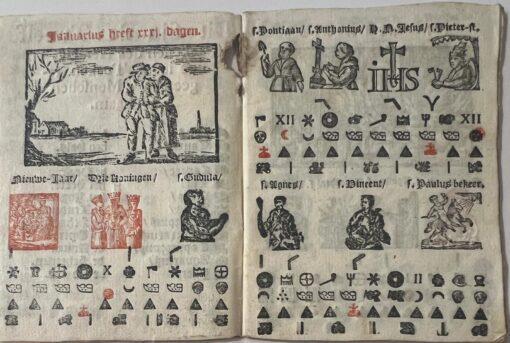 Januarius heeft xxxj. dagen.
Nieuwe-Jaar/ Drie Koningen/ s. Gudula/
X
s. Pontiaan/ s. Anthonius/ H. N. Jesus/ s. Pieter-st.
IHS
XII XII
s. Agnes/ s. Vincent/ s. Paulus bekeer.